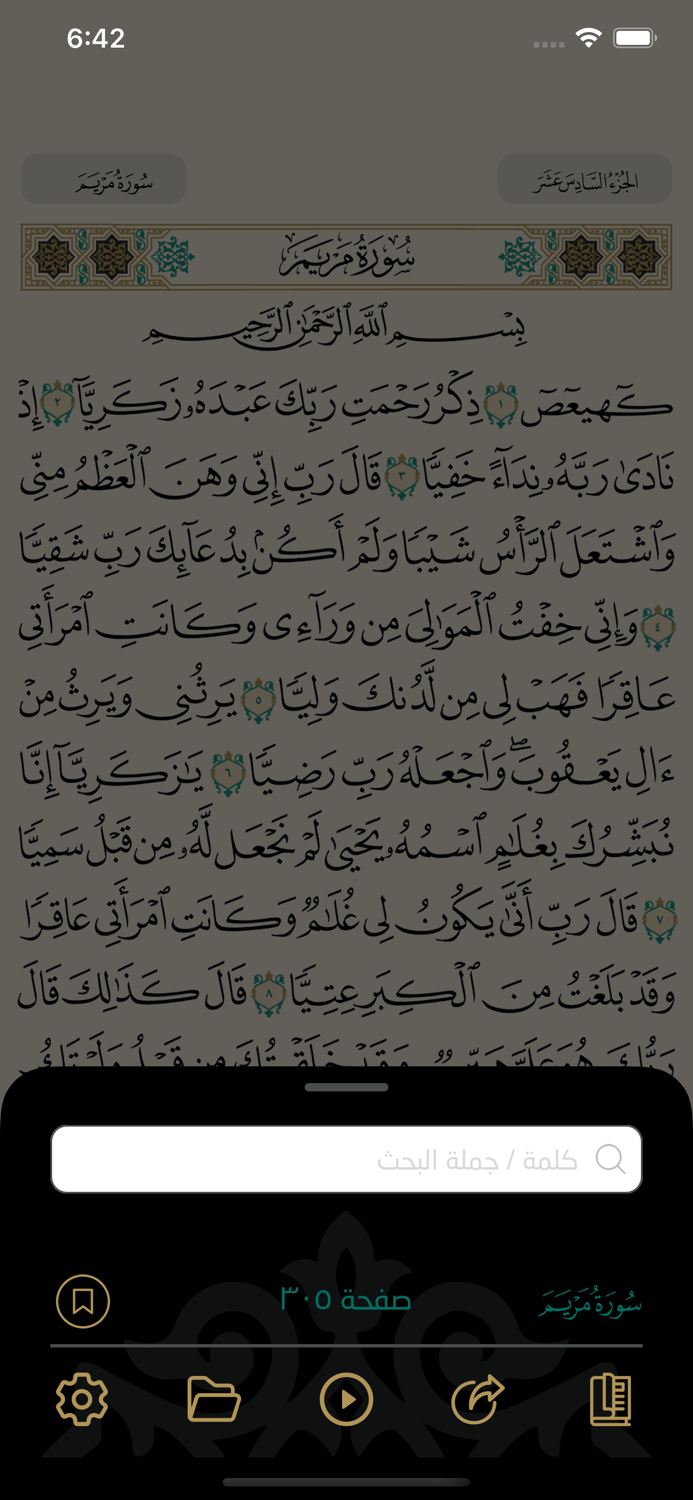 6:42
الجُزْءُ السَّادِسَ عَشَرَ
سُورَةُ مَرْيَمَ
سُورَةُ مَرْيَمَ
بِسْمِ ٱللَّهِ ٱلرَّحْمَٰنِ ٱلرَّحِيمِ
كٓهيعٓصٓ ١ ذِكْرُ رَحْمَتِ رَبِّكَ عَبْدَهُۥ زَكَرِيَّآ ٢ إِذْ
نَادَىٰ رَبَّهُۥ نِدَآءً خَفِيًّا ٣ قَالَ رَبِّ إِنِّي وَهَنَ ٱلْعَظْمُ مِنِّي
وَٱشْتَعَلَ ٱلرَّأْسُ شَيْبًا وَلَمْ أَكُنۢ بِدُعَآئِكَ رَبِّ شَقِيًّا
٤ وَإِنِّي خِفْتُ ٱلْمَوَٰلِيَ مِن وَرَآءِي وَكَانَتِ ٱمْرَأَتِي
عَاقِرًا فَهَبْ لِي مِن لَّدُنكَ وَلِيًّا ٥ يَرِثُنِي وَيَرِثُ مِنْ
ءَالِ يَعْقُوبَۖ وَٱجْعَلْهُ رَبِّ رَضِيًّا ٦ يَٰزَكَرِيَّآ إِنَّا
نُبَشِّرُكَ بِغُلَٰمٍ ٱسْمُهُۥ يَحْيَىٰ لَمْ نَجْعَل لَّهُۥ مِن قَبْلُ سَمِيًّا
٧ قَالَ رَبِّ أَنَّىٰ يَكُونُ لِي غُلَٰمٌ وَكَانَتِ ٱمْرَأَتِي عَاقِرًا
وَقَدْ بَلَغْتُ مِنَ ٱلْكِبَرِ عِتِيًّا ٨ قَالَ كَذَٰلِكَ قَالَ
رَبُّكَ هُوَ عَلَيَّ هَيِّنٌ وَقَدْ خَلَقْتُكَ مِن قَبْلُ وَلَمْ تَكُ
كلمة / جملة البحث
سُورَةُ مَرْيَمَ
صفحة ٣٠٥